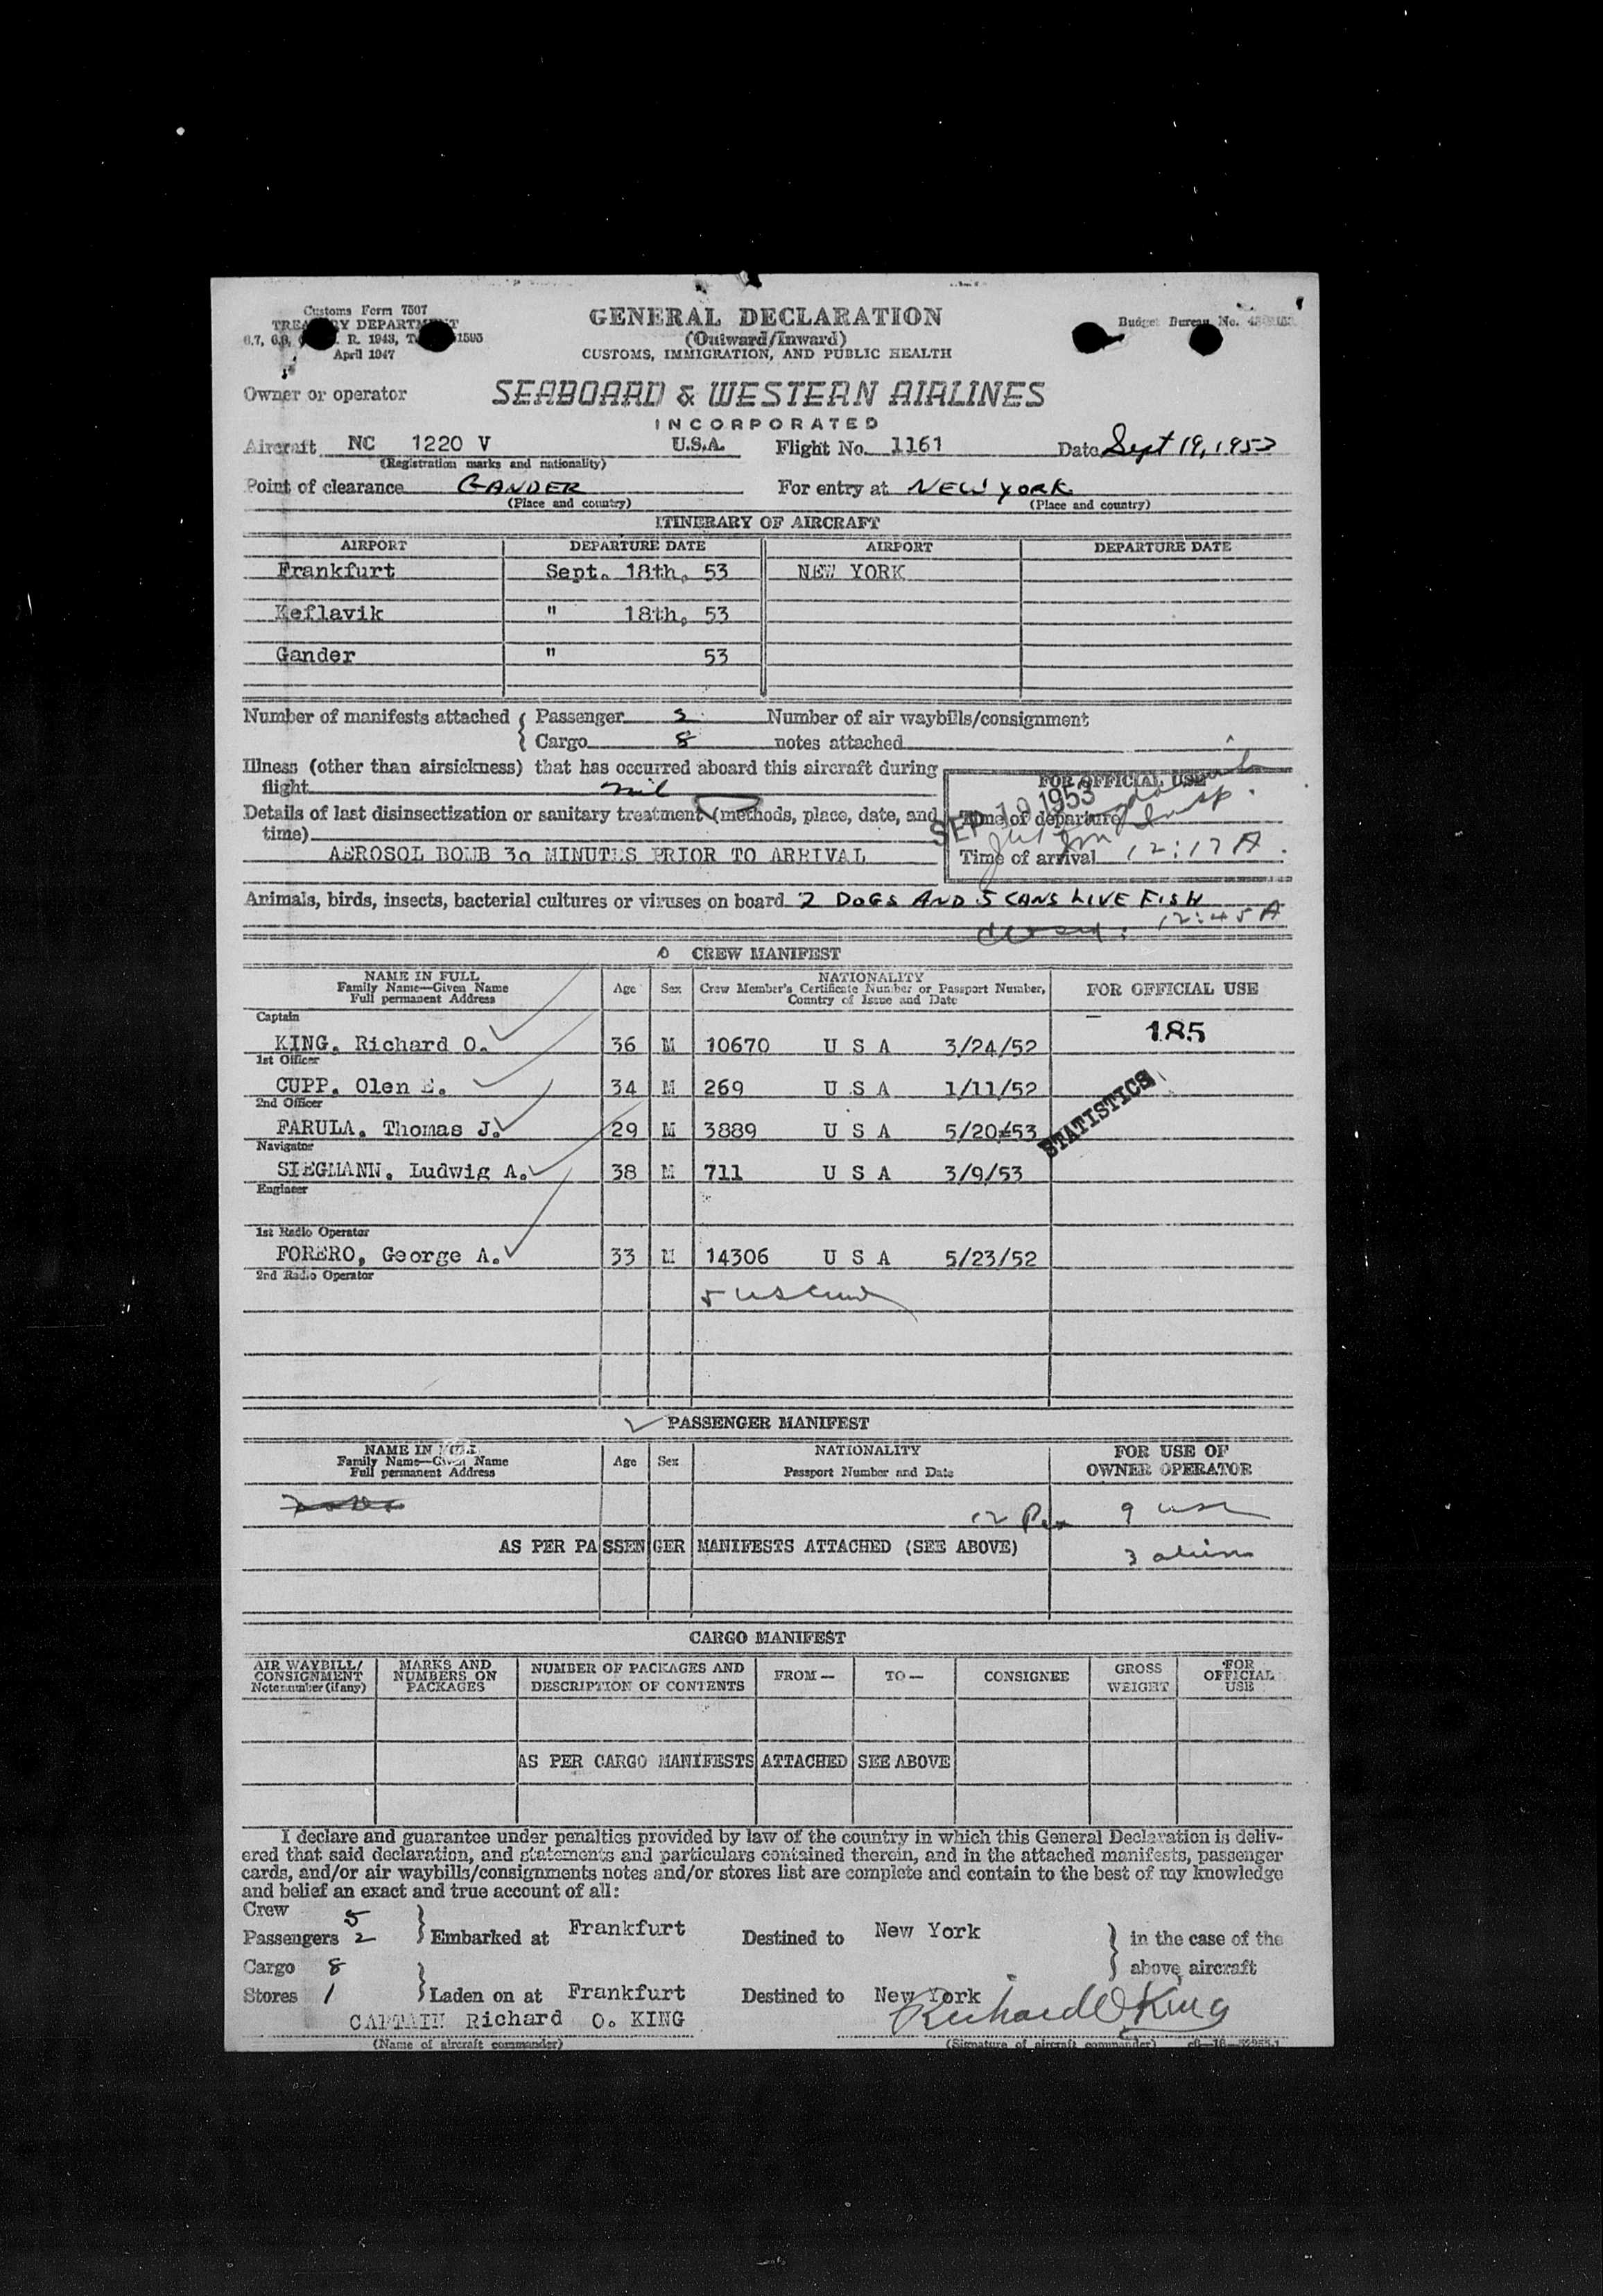 Customs Form 7507
TREASURY DEPARTMENT
April 1947
GENERAL DECLARATION
(Outward/Inward)
CUSTOMS, IMMIGRATION, AND PUBLIC HEALTH
Budget Bureau No.
Owner or operator SEABOARD & WESTERN AIRLINES
INCORPORATED
Aircraft NC 1220 V U.S.A. Flight No. 1161 Date Sept 19, 1953
(Registration marks and nationality)
Point of clearance GANDER For entry at NEW YORK
(Place and country) (Place and country)
ITINERARY OF AIRCRAFT
AIRPORT DEPARTURE DATE AIRPORT DEPARTURE DATE
Frankfurt Sept. 18th, 53 NEW YORK
Keflavik " 18th, 53
Gander " 53
Number of manifests attached { Passenger Number of air waybills/consignment
Cargo 8 notes attached
Illness (other than airsickness) that has occurred aboard this aircraft during
flight nil
FOR OFFICIAL USE
SEP 19 1953
Details of last disinsectization or sanitary treatment (methods, place, date, and
time)
Time of departure
AEROSOL BOMB 30 MINUTES PRIOR TO ARRIVAL
Time of arrival 12:17 A.
Animals, birds, insects, bacterial cultures or viruses on board 2 DOGS AND 5 CANS LIVE FISH
12:45 A
CREW MANIFEST
NAME IN FULL
Family Name—Given Name
Full permanent Address
Age Sex
NATIONALITY
Crew Member's Certificate Number or Passport Number,
Country of Issue and Date
FOR OFFICIAL USE
Captain
KING, Richard O. 36 M 10670 U S A 3/24/52
185
1st Officer
CUPP, Olen E. 34 M 269 U S A 1/11/52
2nd Officer
FARULA, Thomas J. 29 M 3889 U S A 5/20/53
STATISTICS
Navigator
SIEGMANN, Ludwig A. 38 M 711 U S A 3/9/53
Engineer
1st Radio Operator
FORERO, George A. 33 M 14306 U S A 5/23/52
2nd Radio Operator
PASSENGER MANIFEST
NAME IN FULL
Family Name—Given Name
Full permanent Address
Age Sex
NATIONALITY
Passport Number and Date
FOR USE OF
OWNER OPERATOR
12 9
AS PER PASSENGER MANIFESTS ATTACHED (SEE ABOVE)
3 aliens
CARGO MANIFEST
AIR WAYBILL/
CONSIGNMENT
Note number (if any)
MARKS AND
NUMBERS ON
PACKAGES
NUMBER OF PACKAGES AND
DESCRIPTION OF CONTENTS
FROM— TO— CONSIGNEE
GROSS
WEIGHT
FOR
OFFICIAL
USE
AS PER CARGO MANIFESTS ATTACHED SEE ABOVE
I declare and guarantee under penalties provided by law of the country in which this General Declaration is deliv-
ered that said declaration, and statements and particulars contained therein, and in the attached manifests, passenger
cards, and/or air waybills/consignments notes and/or stores list are complete and contain to the best of my knowledge
and belief an exact and true account of all:
Crew 5
Passengers 2 } Embarked at Frankfurt Destined to New York } in the case of the
Cargo 8 above aircraft
Stores 1 } Laden on at Frankfurt Destined to New York
CAPTAIN Richard O. KING Richard O King
(Name of aircraft commander) (Signature of aircraft commander)